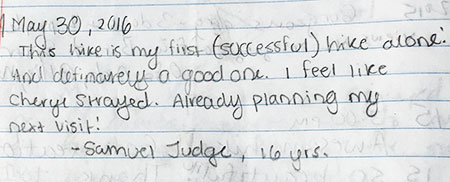 May 30, 2016
This hike is my first (successful) hike alone!
And definately a good one. I feel like
Cheryl Strayed. Already planning my
next visit!
- Samuel Judge, 16 yrs.